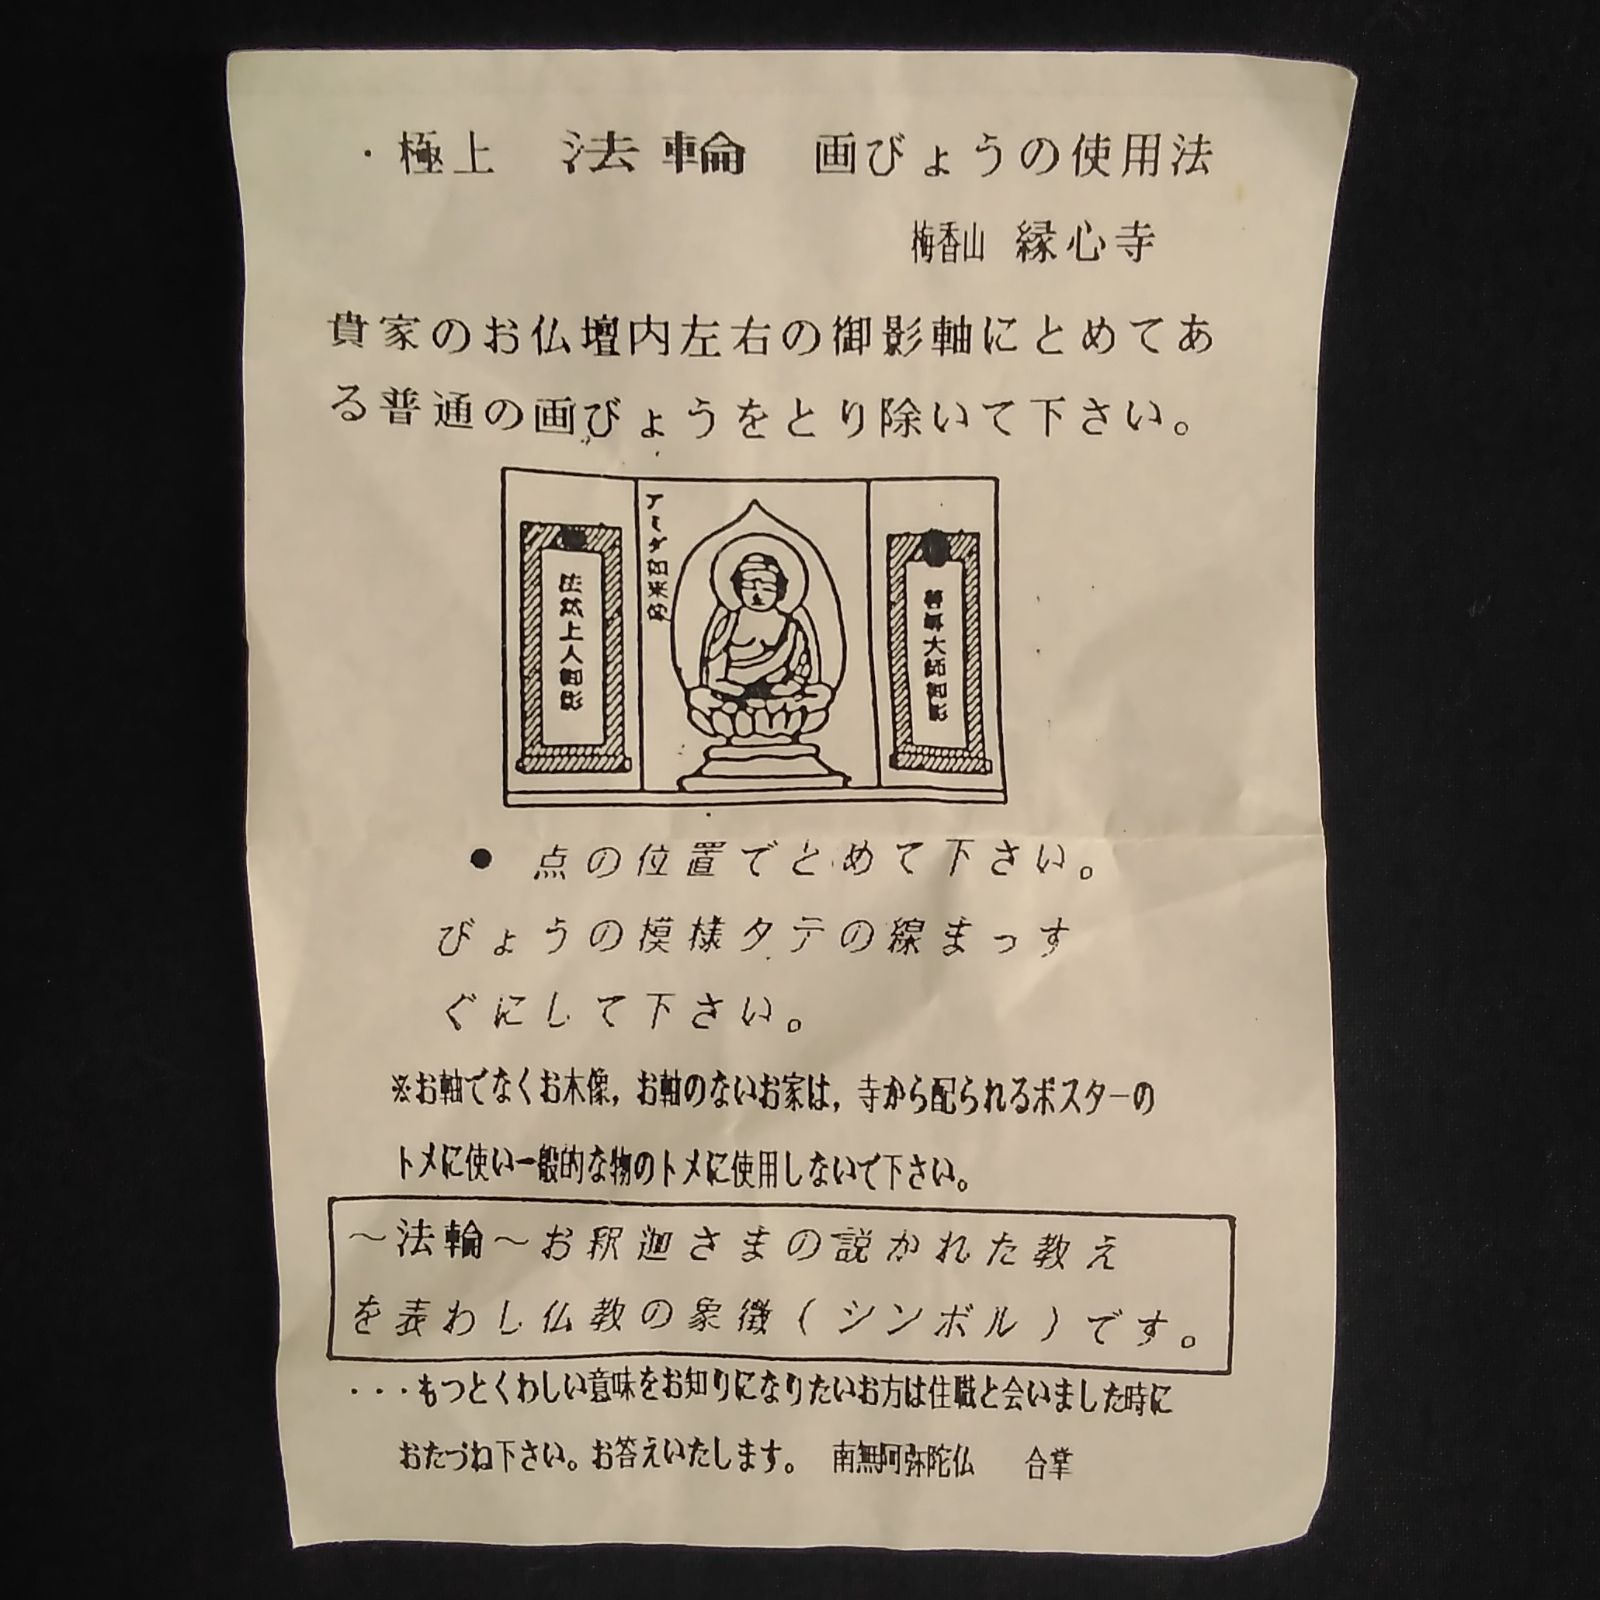 ・極上 法輪 画びょうの使用法
梅香山 縁心寺
貴家のお仏壇内左右の御影軸にとめてあ
る普通の画びょうをとり除いて下さい。
法然上人御影
アミダ如来像
善導大師御影
● 点の位置でとめて下さい。
びょうの模様タテの線まっす
ぐにして下さい。
※お軸でなくお木像，お軸のないお家は，寺から配られるポスターの
トメに使い一般的な物のトメに使用しないで下さい。
～法輪～お釈迦さまの説かれた教え
を表わし仏教の象徴(シンボル)です。
・・・もつとくわしい意味をお知りになりたいお方は住職と会いました時に
おたづね下さい。お答えいたします。 南無阿弥陀仏 合掌